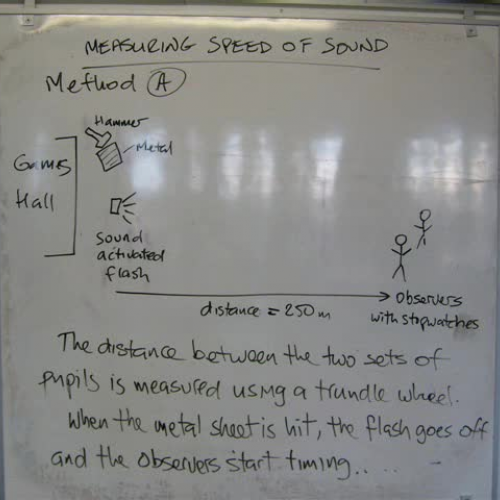 MEASURING SPEED OF SOUND
Method A
Hammer
Metal
Games
Hall
Sound
activated
flash
distance = 250m
Observers
with stopwatches
The distance between the two sets of
pupils is measured using a trundle wheel.
When the metal sheet is hit, the flash goes off
and the observers start timing....